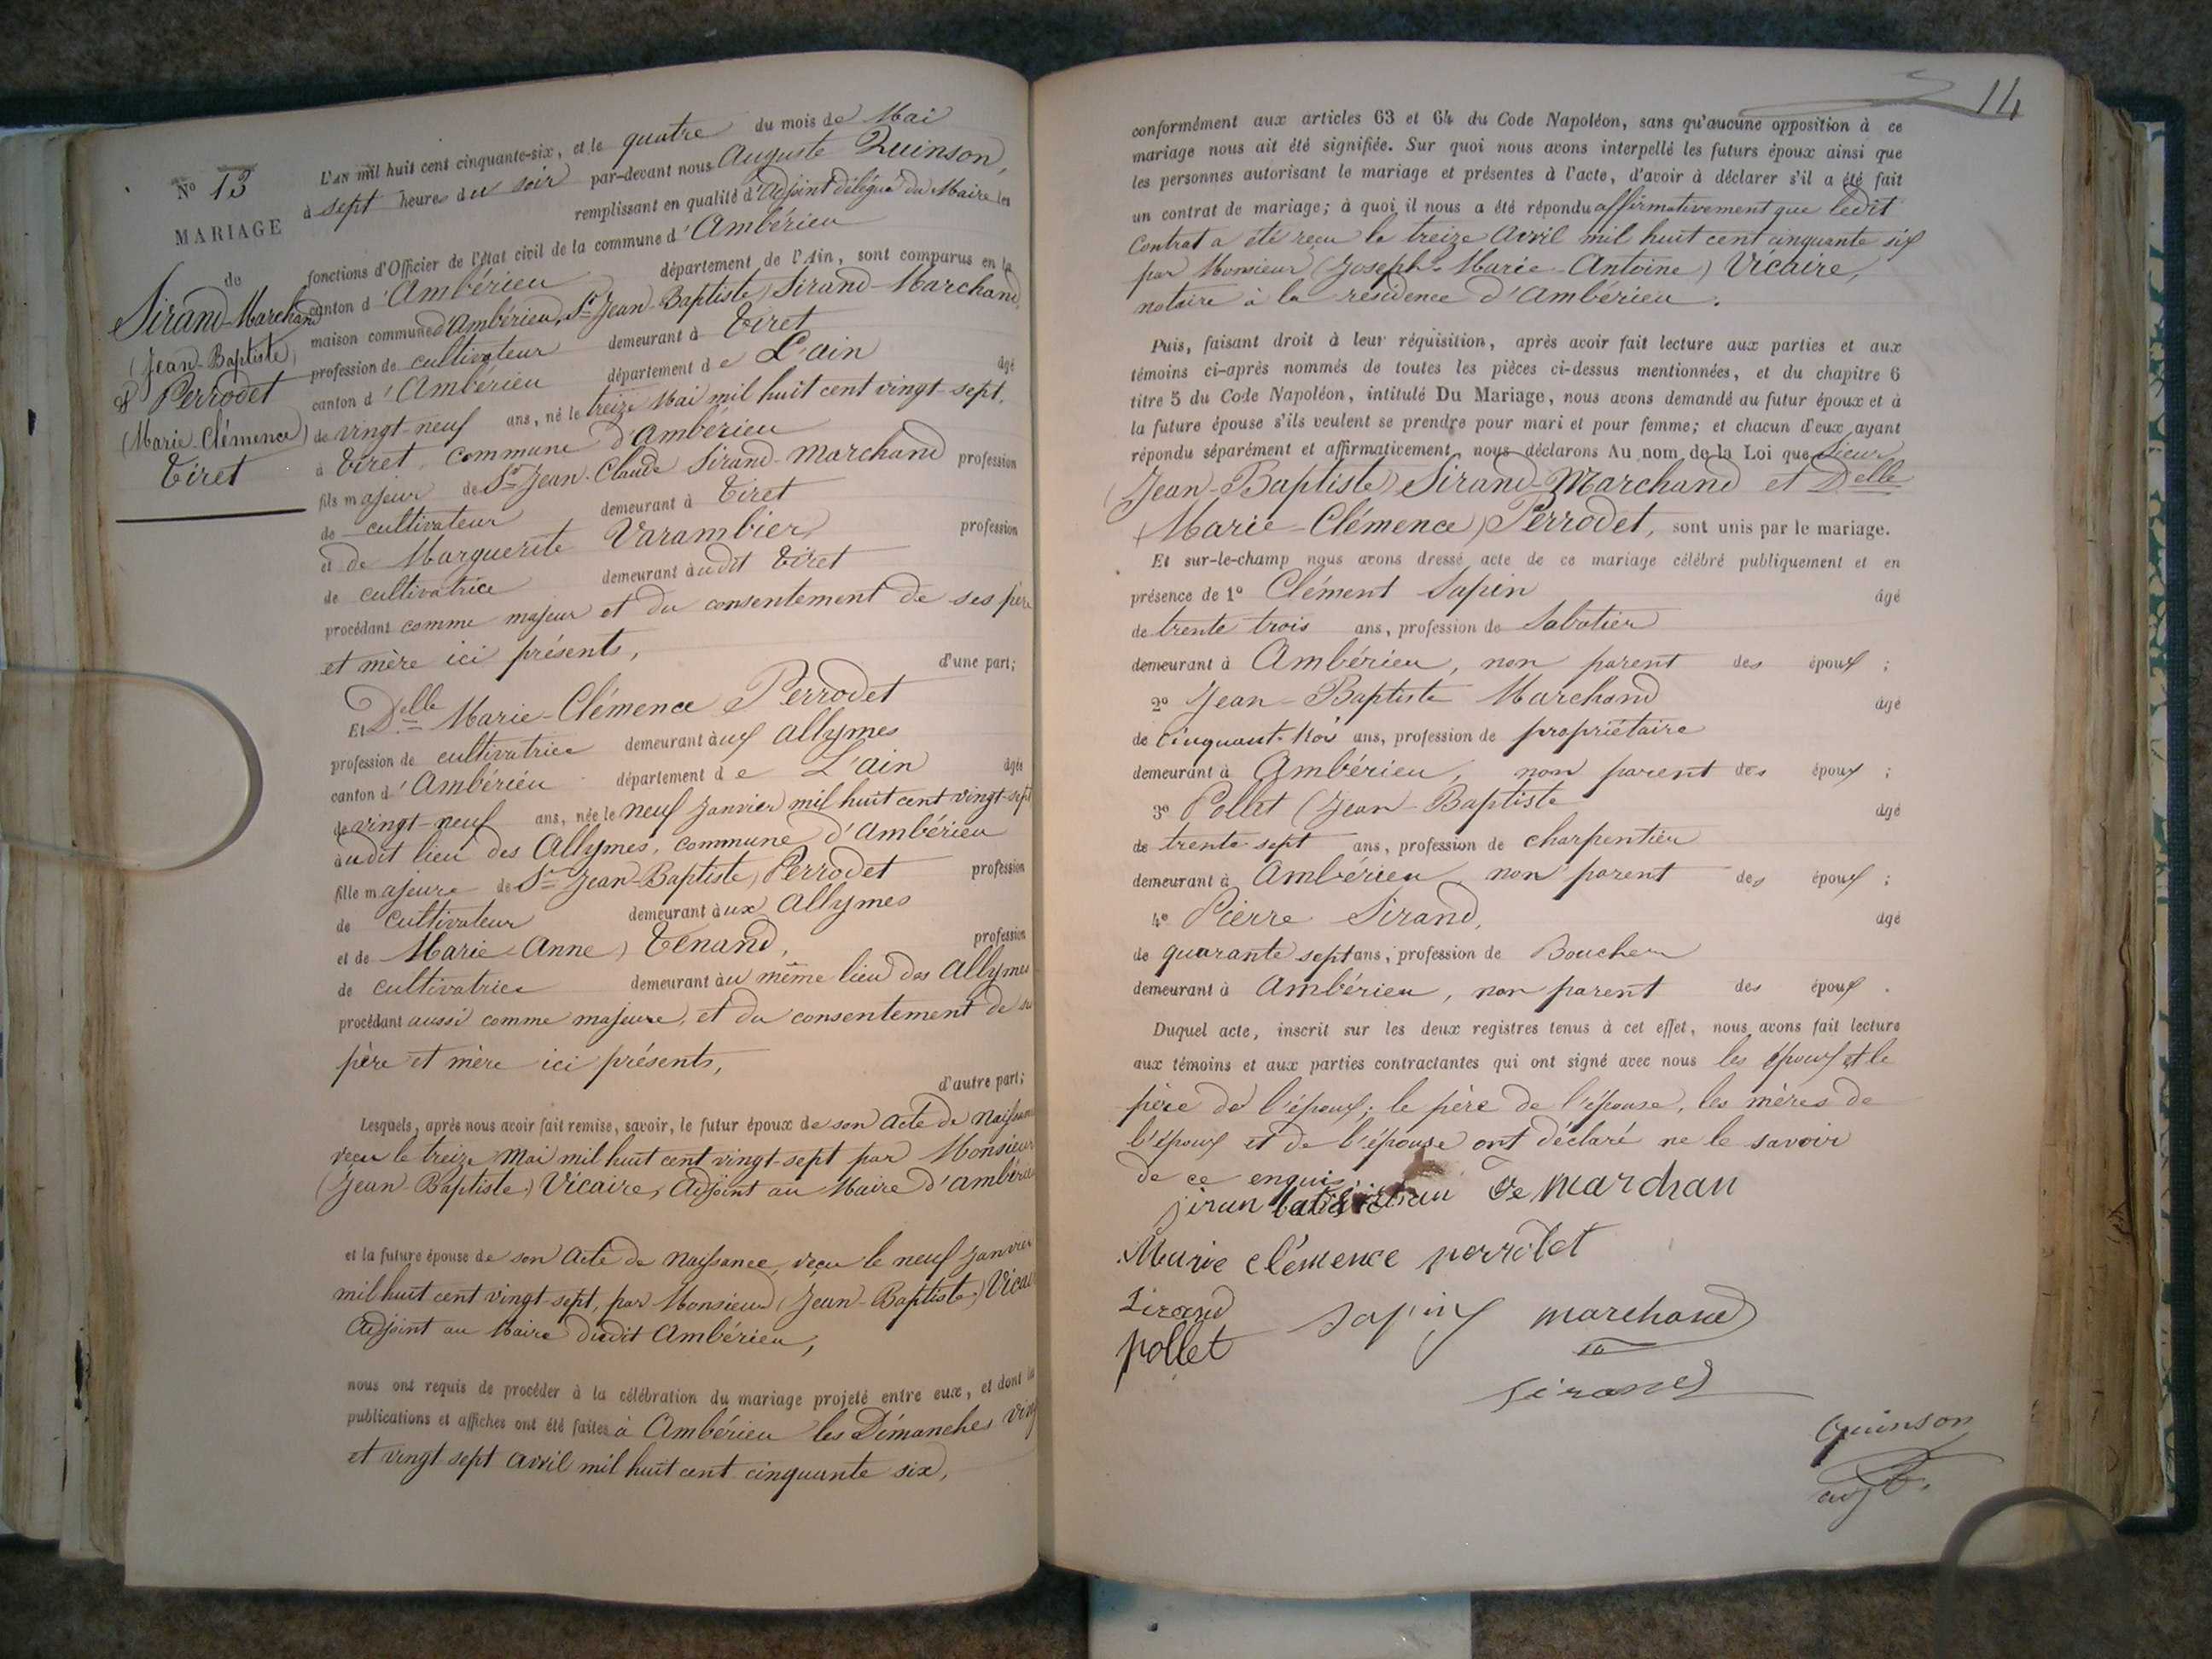 N° 13
MARIAGE
de
Sirand-Marchand
(Jean-Baptiste)
& Perrodet
(Marie Clémence)
Tiret
L'AN mil huit cent cinquante-six, et le quatre du mois de Mai
à sept heures du soir par-devant nous Auguste Quinson,
remplissant en qualité d'Adjoint délégué du Maire les
fonctions d'Officier de l'état civil de la commune d'Ambérieu
canton d'Ambérieu département de l'Ain, sont comparus en la
maison commune d'Ambérieu, Sr Jean-Baptiste) Sirand-Marchand,
profession de cultivateur demeurant à Tiret
canton d'Ambérieu département de L'ain âgé
de vingt-neuf ans, né le treize Mai mil huit cent vingt-sept,
à Tiret, commune d'Ambérieu
fils majeur de Sr Jean-Claude Sirand-Marchand profession
de cultivateur demeurant à Tiret
et de Marguerite Varambier, profession
de cultivatrice demeurant àudit Tiret
procédant comme majeur et du consentement de ses père
et mère ici présents,
d'une part;
Et Delle Marie-Clémence Perrodet
profession de cultivatrice demeurant àux Allymes
canton d'Ambérieu département de L'ain âgée
de vingt-neuf ans, née le neuf Janvier mil huit cent vingt-sept
àudit lieu des Allymes, commune d'Ambérieu
fille majeure de Sr Jean-Baptiste) Perrodet profession
de cultivateur demeurant àux Allymes
et de Marie-Anne) Tenand, profession
de cultivatrice demeurant àu même lieu des Allymes
procédant aussi comme majeure, et du consentement de
père et mère ici présents,
d'autre part;
Lesquels, après nous avoir fait remise, savoir, le futur époux de son acte de
reçu le treize Mai mil huit cent vingt-sept par Monsieur
(Jean-Baptiste) Vicaire, Adjoint au Maire d'
et la future épouse de son acte de Naissance, reçu le neuf Janvier
mil huit cent vingt-sept, par Monsieur (Jean-Baptiste)
Adjoint au Maire dudit Ambérieu,
nous ont requis de procéder à la célébration du mariage projeté entre eux, et dont
publications et affiches ont été faites à Ambérieu les Dimanches
et vingt sept avril mil huit cent cinquante six,
14
conformément aux articles 63 et 64 du Code Napoléon, sans qu'aucune opposition à ce
mariage nous ait été signifiée. Sur quoi nous avons interpellé les futurs époux ainsi que
les personnes autorisant le mariage et présentes à l'acte, d'avoir à déclarer s'il a été fait
un contrat de mariage; à quoi il nous a été répondu affirmativement que ledit
Contrat a été reçu le treize Avril mil huit cent cinquante six
par Monsieur (Joseph-Marie-Antoine) Vicaire,
notaire à la résidence d'Ambérieu.
Puis, faisant droit à leur réquisition, après avoir fait lecture aux parties et aux
témoins ci-après nommés de toutes les pièces ci-dessus mentionnées, et du chapitre 6
titre 5 du Code Napoléon, intitulé Du Mariage, nous avons demandé au futur époux et à
la future épouse s'ils veulent se prendre pour mari et pour femme; et chacun d'eux ayant
répondu séparément et affirmativement, nous déclarons Au nom de la Loi que Sieur
(Jean-Baptiste) Sirand-Marchand et Delle
(Marie-Clémence) Perrodet, sont unis par le mariage.
Et sur-le-champ nous avons dressé acte de ce mariage célébré publiquement et en
présence de 1° Clément Sapin âgé
de trente trois ans, profession de Sabotier
demeurant à Ambérieu, non parent des époux;
2° Jean-Baptiste Marchand âgé
de Cinquante-trois ans, profession de propriétaire
demeurant à Ambérieu, non parent des époux;
3° Pollet (Jean-Baptiste âgé
de trente sept ans, profession de charpentier
demeurant à Ambérieu, non parent des époux;
4° Pierre Sirand, âgé
de quarante sept ans, profession de Boucher
demeurant à Ambérieu, non parent des époux.
Duquel acte, inscrit sur les deux registres tenus à cet effet, nous avons fait lecture
aux témoins et aux parties contractantes qui ont signé avec nous les époux et le
père de l'époux; le père de l'épouse, les mères de
l'époux et de l'épouse ont déclaré ne le savoir
de ce enquis.
marchan
Marie clémence perrodet
Sirand sapin marchand
pollet
sirand
Quinson
adjt.